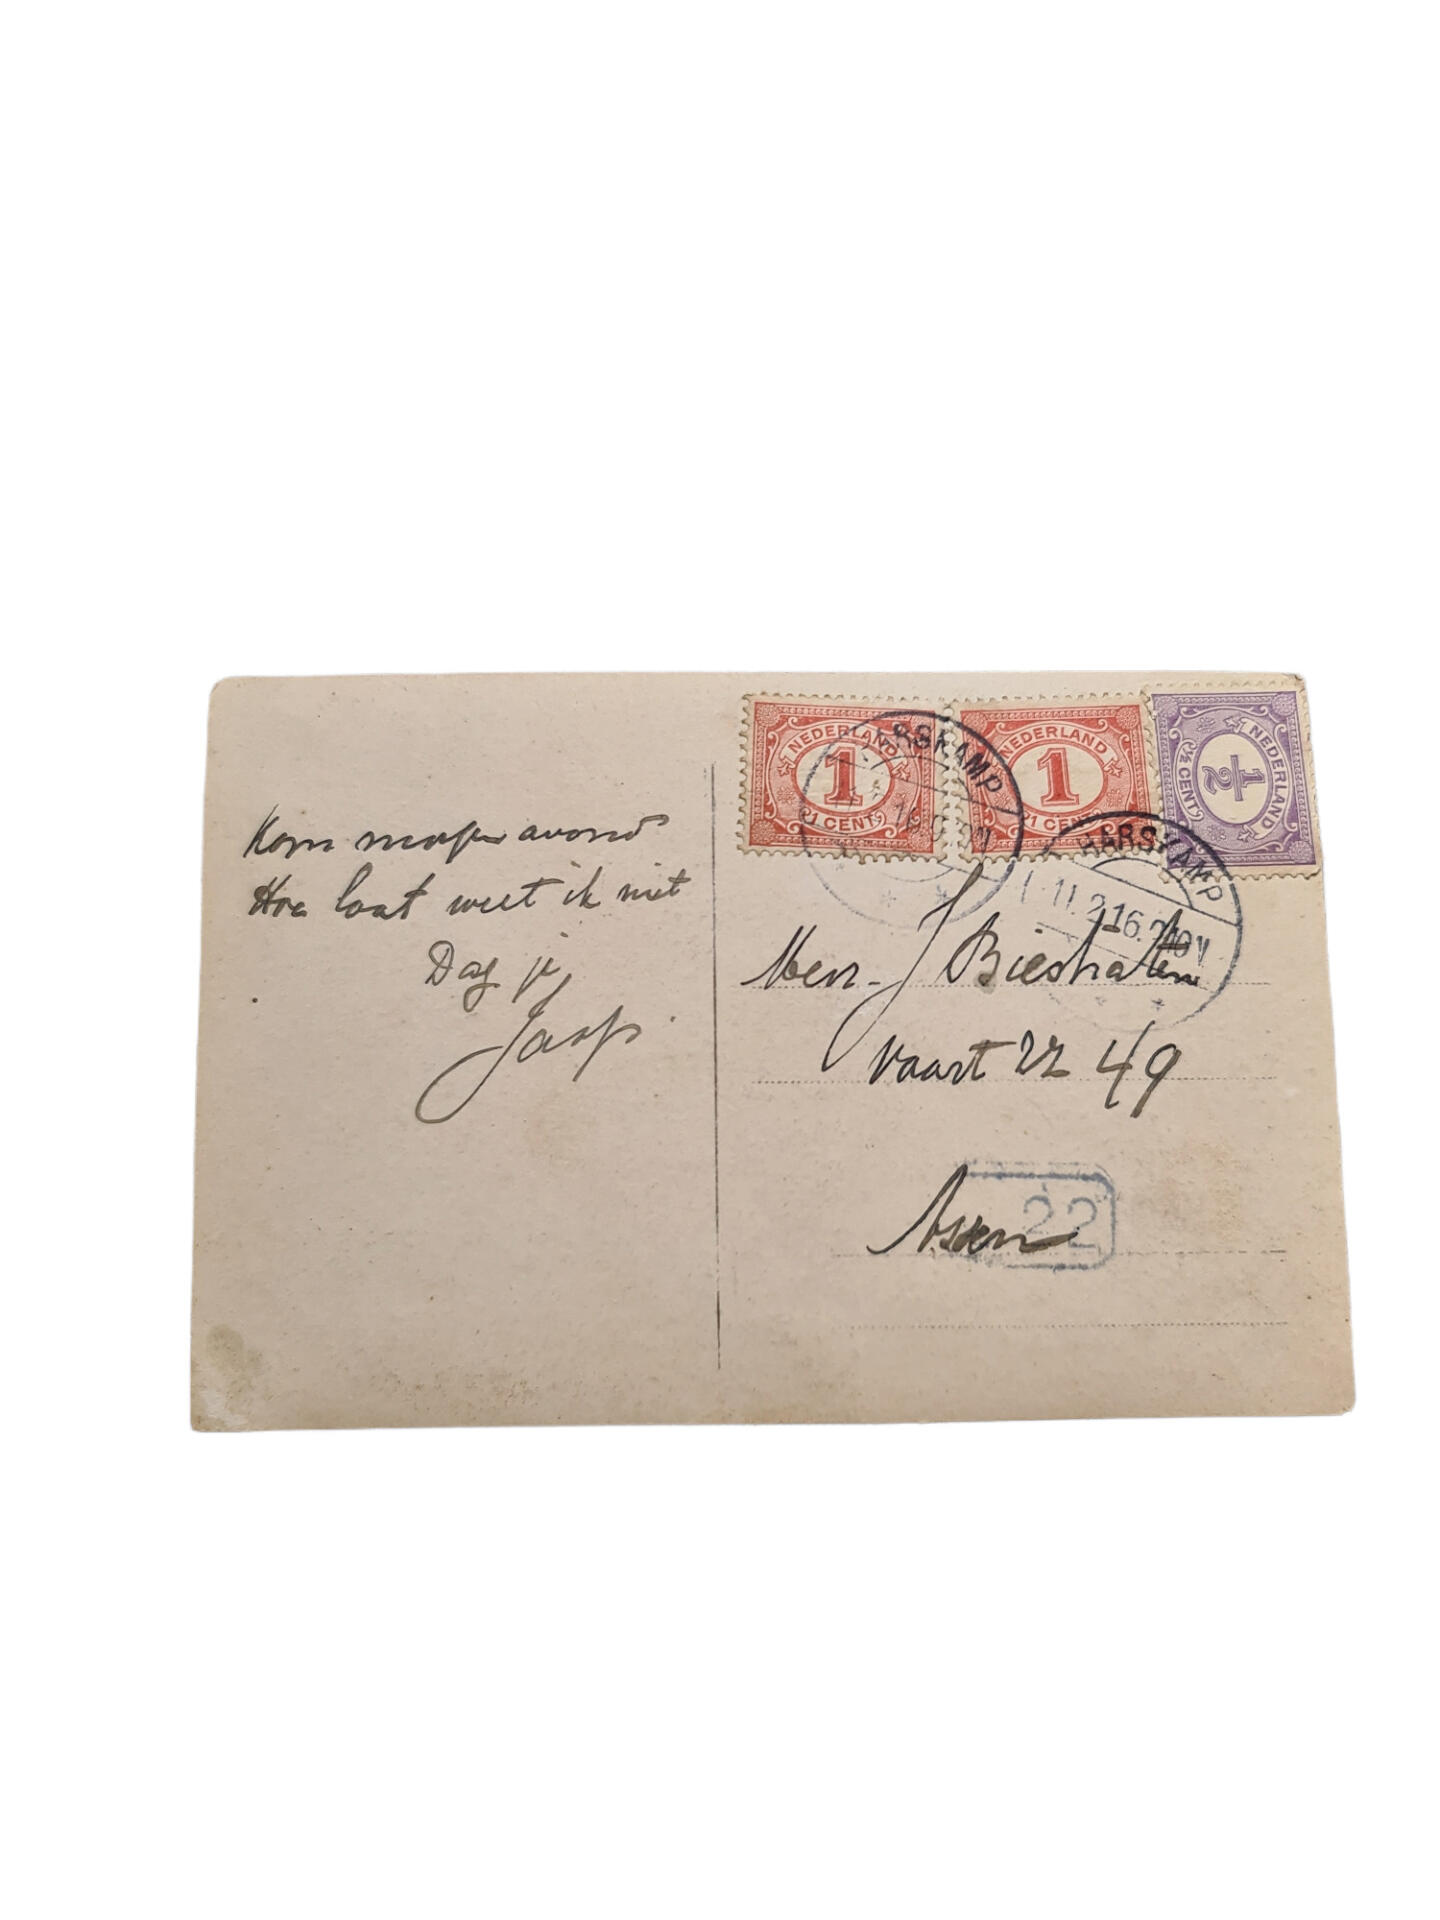 NEDERLAND
1
1 CENT
NEDERLAND
1
1 CENT
NEDERLAND
1/2
½ CENT
HARSKAMP
HARSKAMP
11.2.16.
Kom morgen avond
Hoe laat weet ik niet
Dag je
Jaap.
J
Vaart ZZ 49
Assen
22